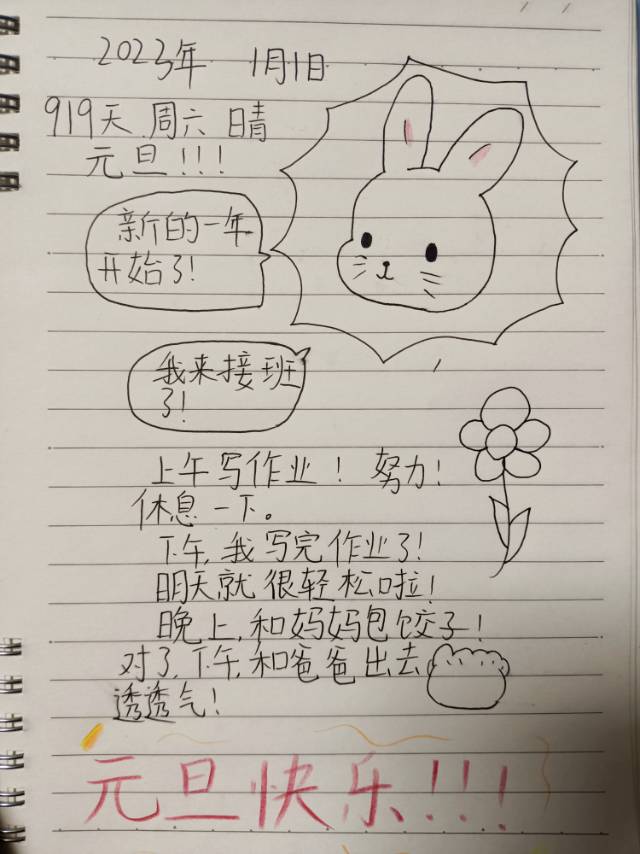 2023年 1月1日
919天 周六 晴
元旦!!!
新的一年
开始了!
我来接班
了!
上午写作业! 努力!
休息一下。
下午,我写完作业了!
明天就很轻松啦!
晚上,和妈妈包饺子!
对了,下午,和爸爸出去
透透气!
元旦快乐!!!